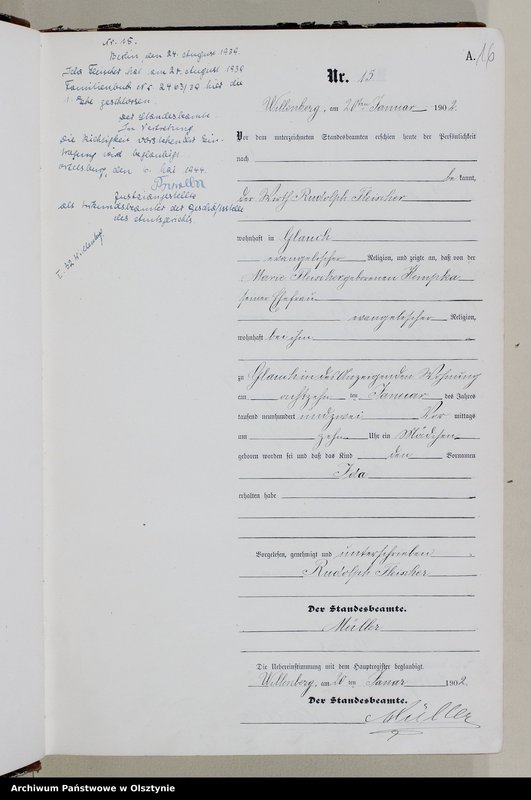 Nr. 15.
Berlin den 24. August 1939
Ida Fleischer hat am 24. August 1939
Familienbuch Nr. 2463/39 hier die
1. Ehe geschlossen.
Der Standesbeamte.
In Vertretung
Die Richtigkeit vorstehender Ein-
tragung wird beglaubigt.
Ortelsburg, den 6. Mai 1944.
Justizangestellter
als Urkundsbeamter der Geschäftsstelle
des Amtsgerichts
A. 16
Nr. 15
Willenberg, am 20ten Januar 1902.
Vor dem unterzeichneten Standesbeamten erschien heute der Persönlichkeit
nach
be kannt,
der Wirth Rudolph Fleischer
wohnhaft in Glauch
evangelischer Religion, und zeigte an, daß von der
Marie Fleischer geborenen Kempka
seiner Ehefrau
evangelischer Religion,
wohnhaft bei ihm
zu Glauch in des Anzeigenden Wohnung
am achtzehn ten Januar des Jahres
tausend neunhundert und zwei Vor mittags
um zehn Uhr ein Mädchen
geboren worden sei und daß das Kind den Vornamen
Ida
erhalten habe
Vorgelesen, genehmigt und unterschrieben
Rudolph Fleischer
Der Standesbeamte.
Müller
Die Uebereinstimmung mit dem Hauptregister beglaubigt.
Willenberg, am 20 ten Januar 1902.
Der Standesbeamte.
Müller
Archiwum Państwowe w Olsztynie